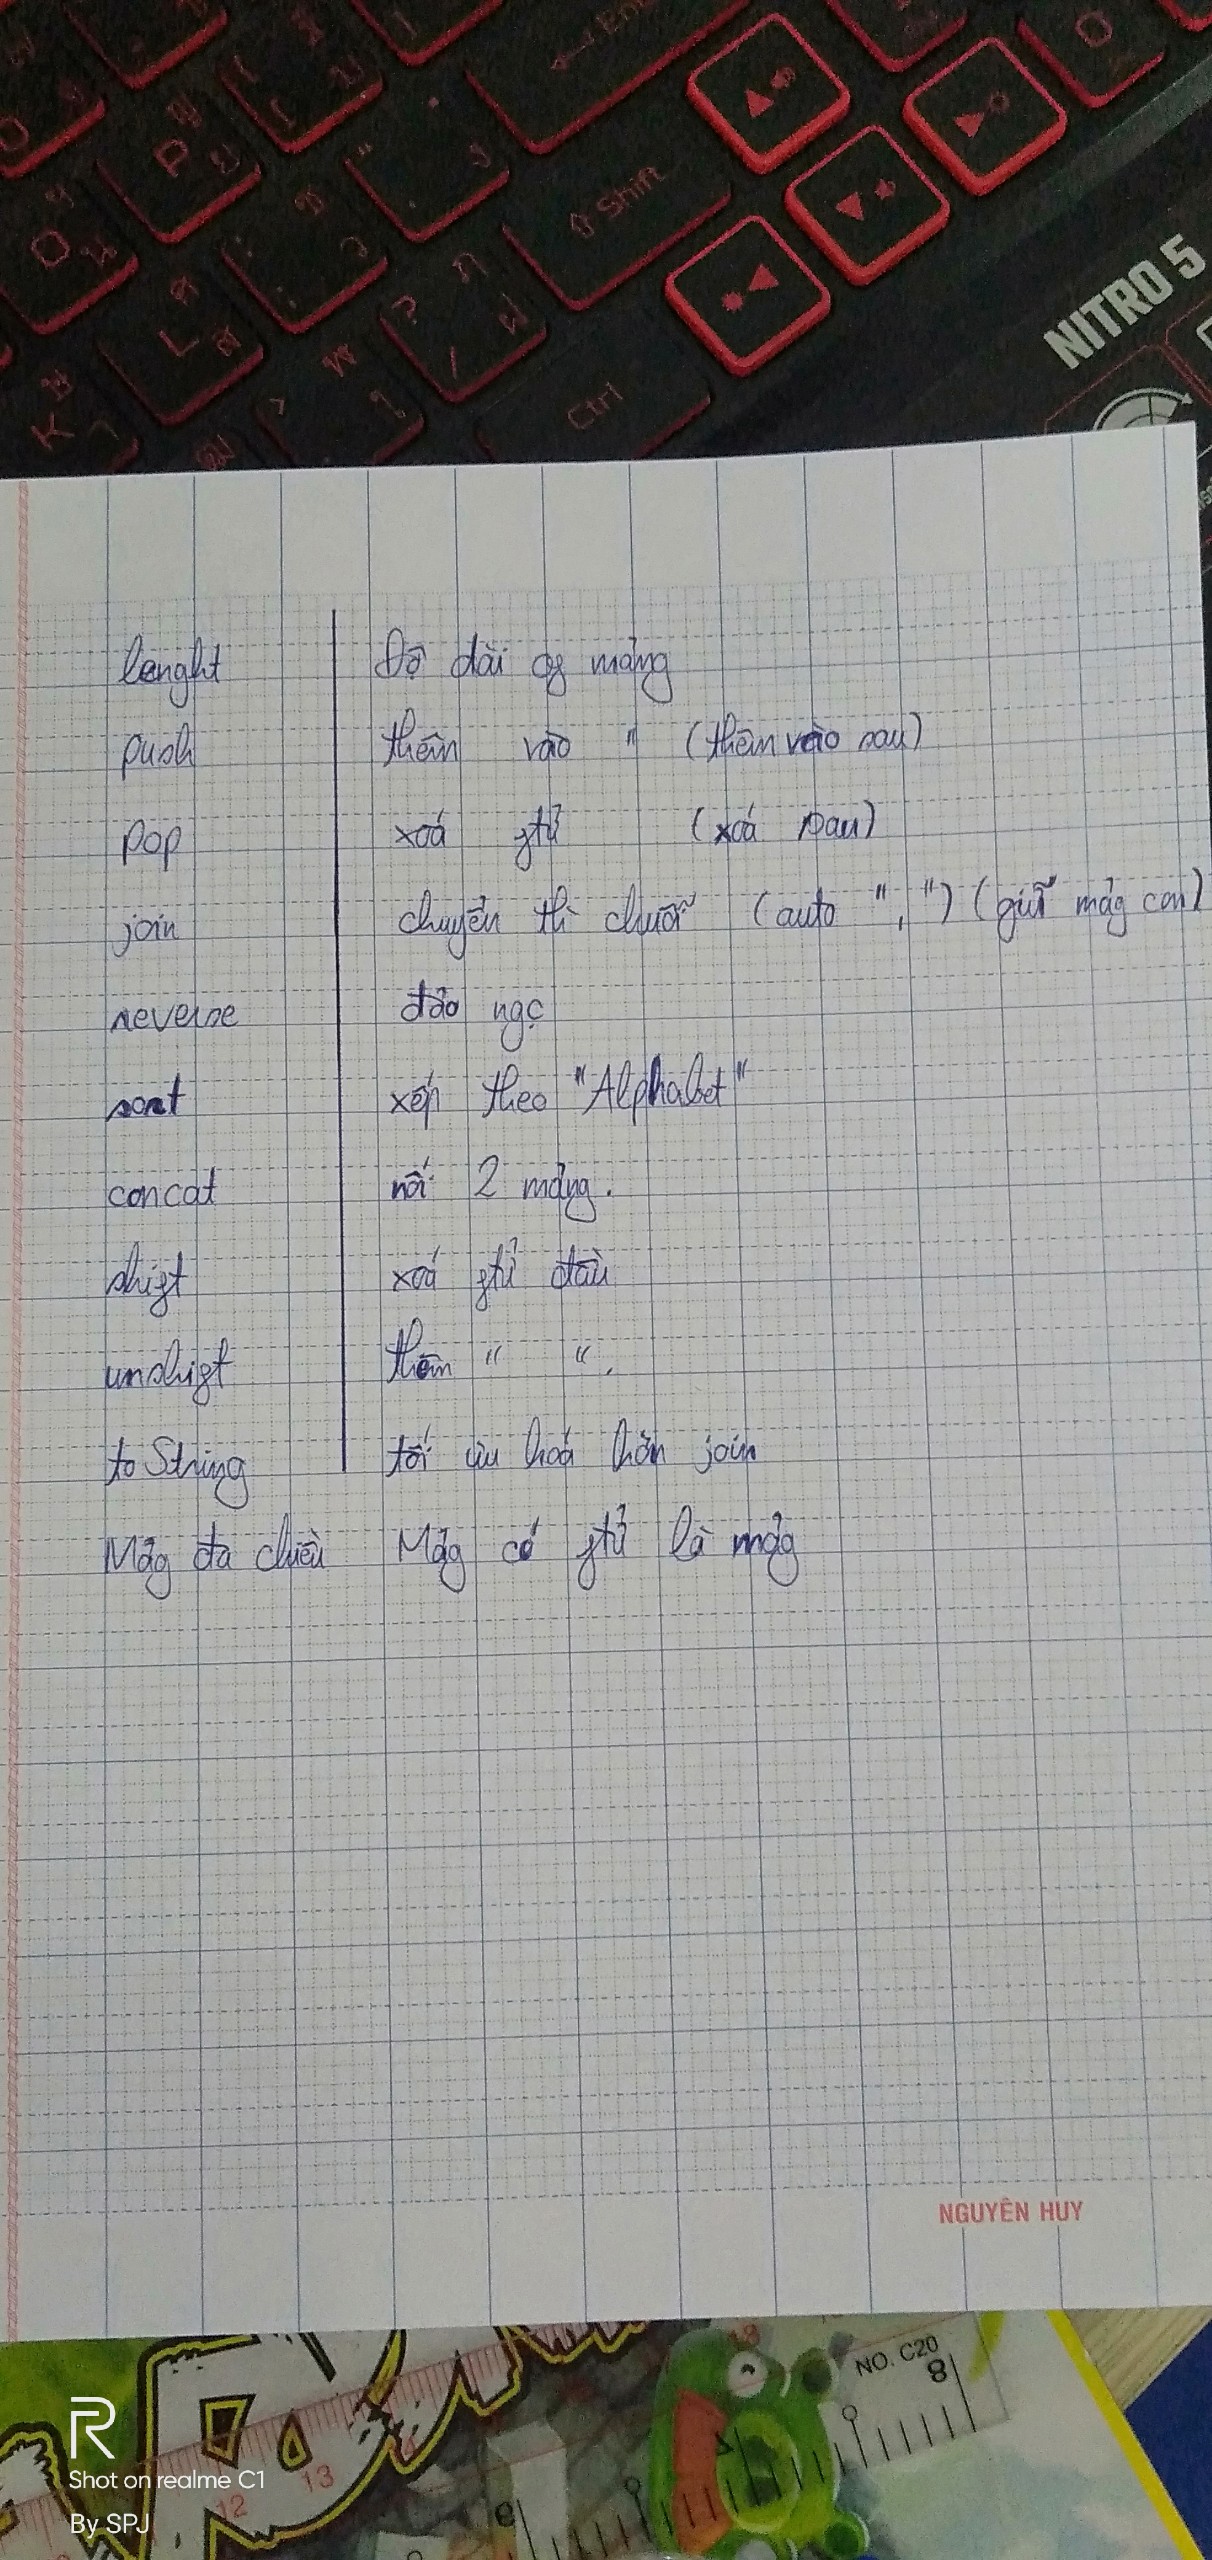 Enter
Shift
Ctrl
NITRO 5
lenght Độ dài củ mảng
push thêm vào " (thêm vào sau)
pop xoá ptử (xoá sau)
join chuyển th chuỗi (auto ",") (giữ mảg con)
reverse đảo ngc
sort xếp theo "Alphabet"
concat nối 2 mảng.
shift xoá ptử đầu
unshift thêm " ".
toString tối ưu hoá hơn join
Mảg đa chiều Mảg có ptử là mảg
NGUYÊN HUY
NO. C20
8
13
12
R
Shot on realme C1
By SPJ